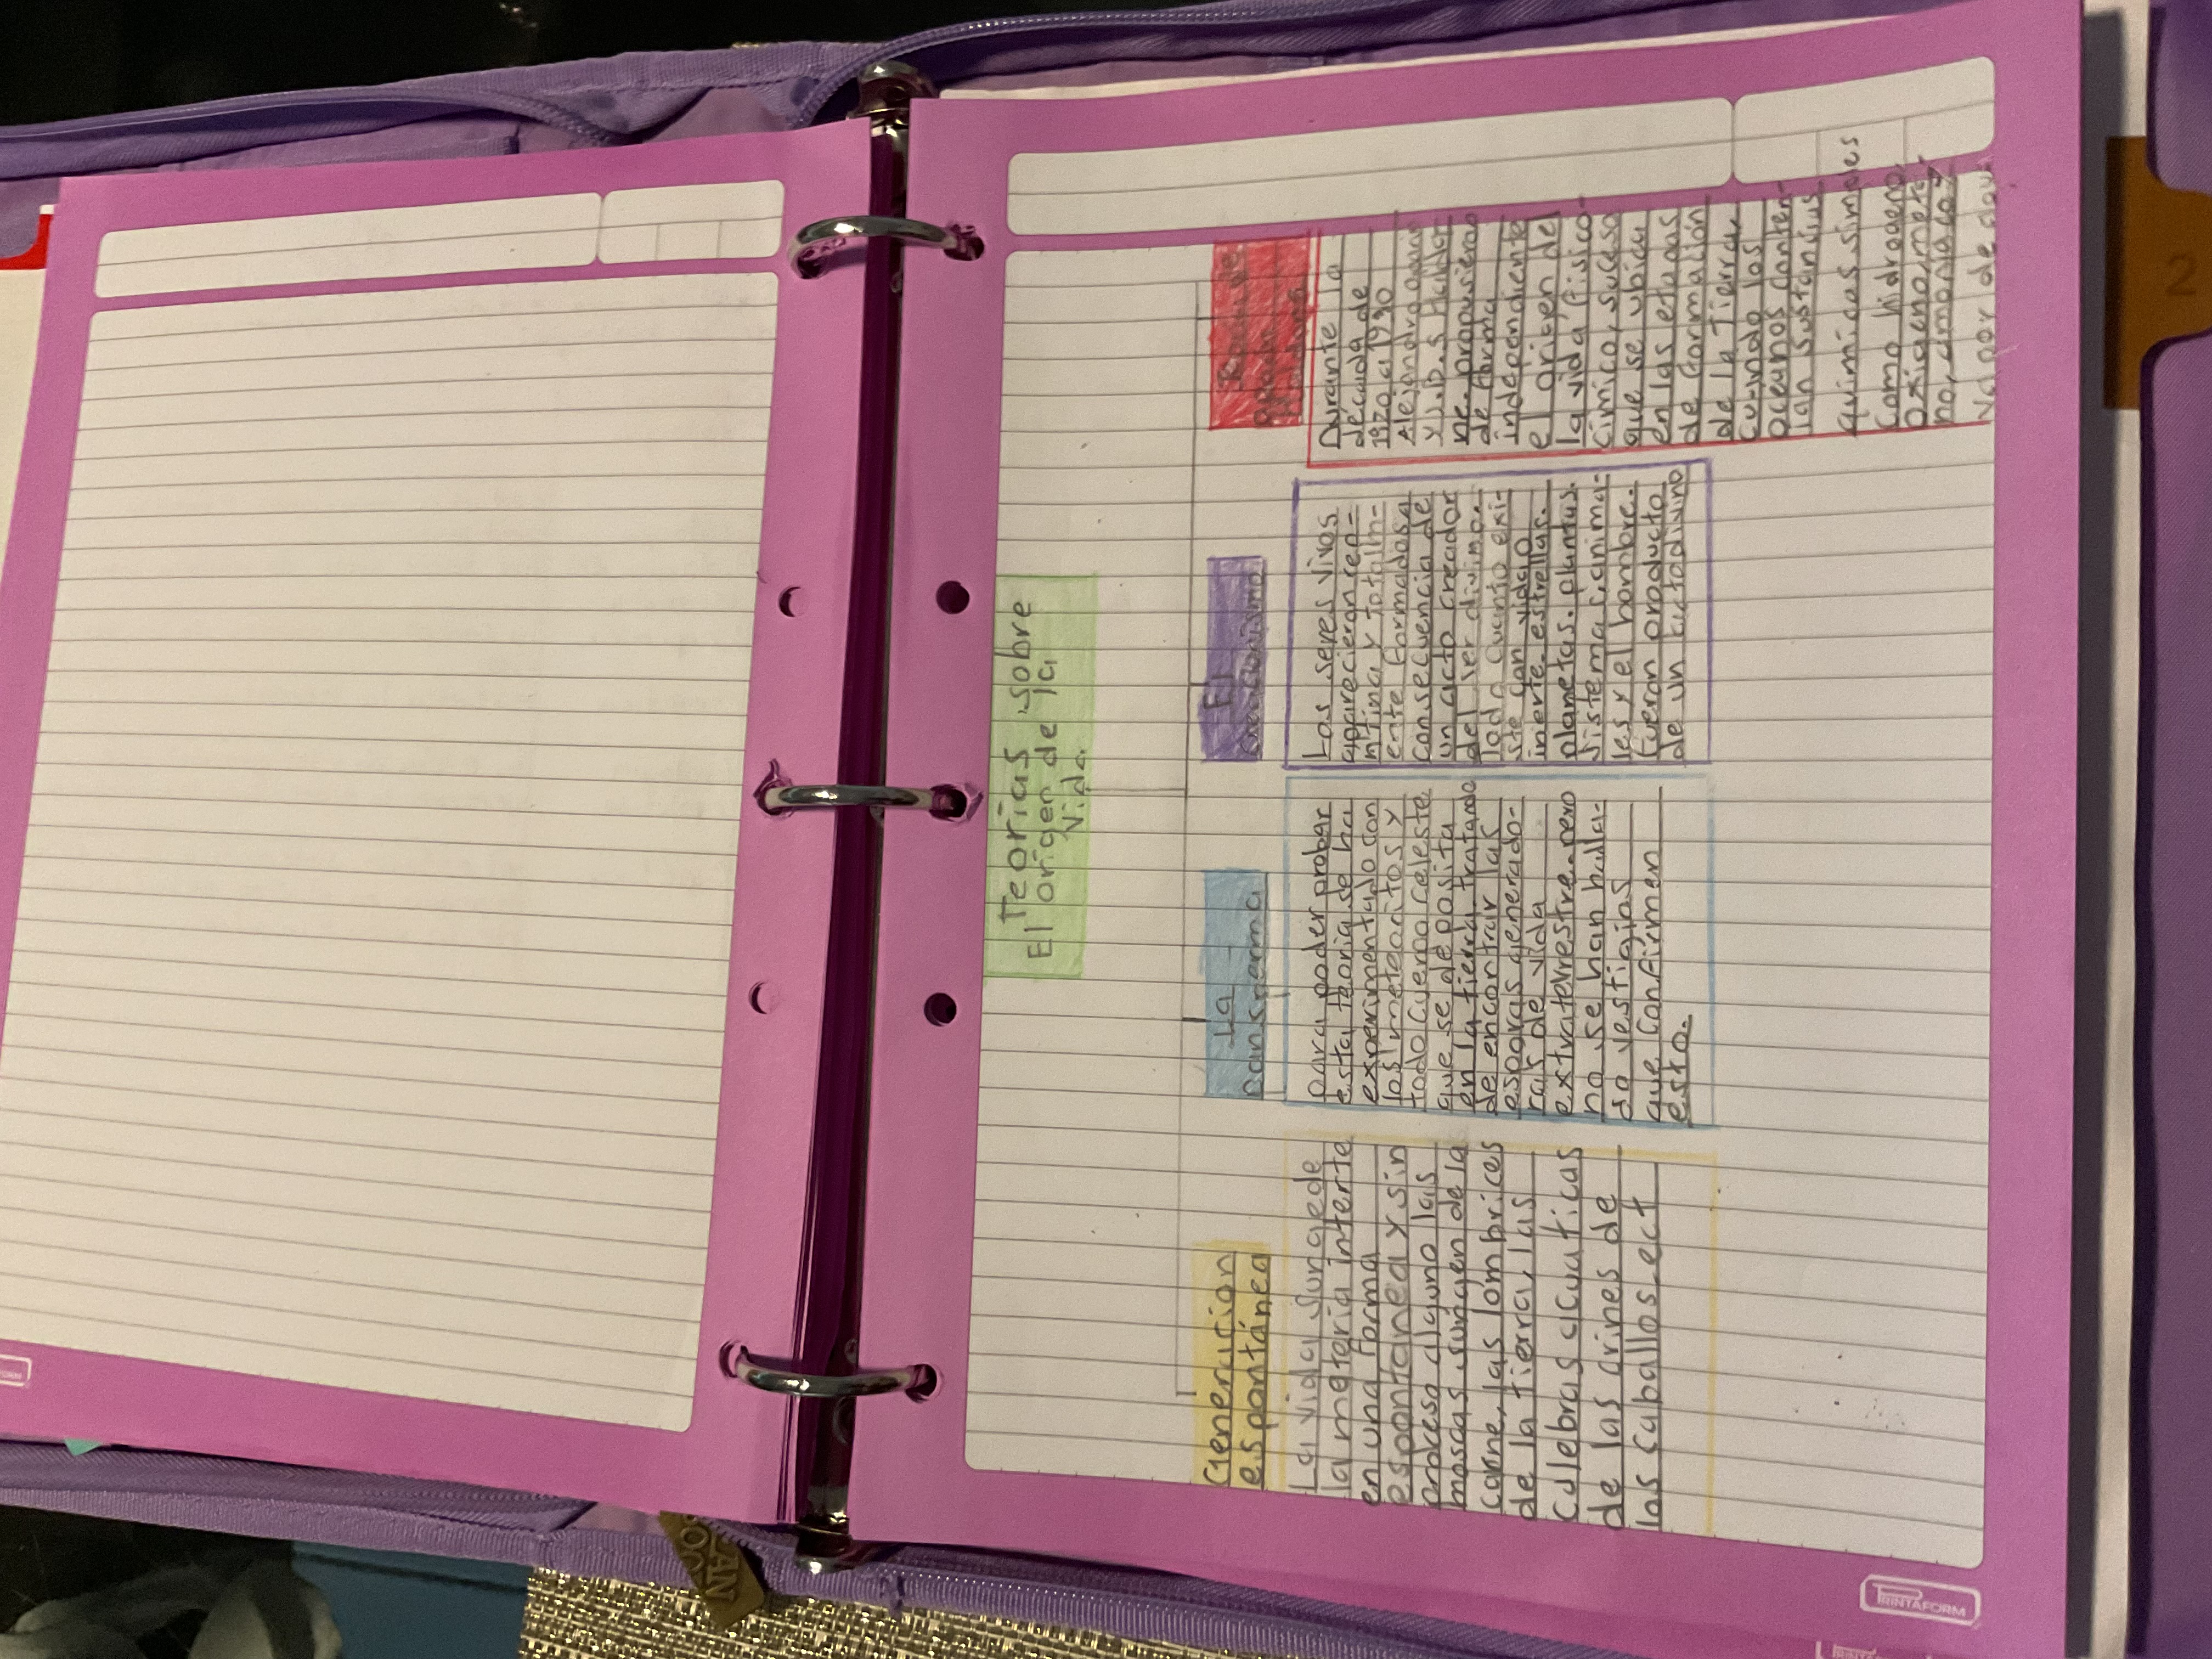 Teorias sobre
El origen de la
Vida.
Generacion
espontánea
La vida surge de
la meteria interte
en una forma
espontanea y sin
proceso alguno las
moscas surgen de la
carne, las lombrices
de la tierra, las
culebras acuaticas
de las crines de
los caballos.ect
La
panspermia
para poder probar
esta teoria se ha
experimentado con
los meteoritos y
todo cuerpo celeste
que se deposita
en la tierra tratando
de encontrar las
esporas generado-
ras de vida
extraterrestre.pero
no se han halla-
do vestigios
que confirmen
esto.
El
creacionismo
Los seres vivos
aparecieron en
intima y totalm-
ente formados a
consecuencia de
un acto creador
del ser divimo.
todo cuanto exi-
ste con vida o
inerte.estrellas.
planetas.plantas.
sistemas,anima-
les y el hombre.
fueron producto
de un acto divino
oparin
Haldane
Durante la
decada de
1920 a 1930
Alejandro oparin
y J.B.S Halda-
ne.propusieron
de forma
independiente
el origen del
la vida fisico-
cimico,suceso
que se ubica
en las etapas
de formación
de la tierra
cuando los
oceanos conten-
ian sustancias
quimicas simples
como hidrogeno,
oxigeno,meta-
no,amoniaco y
vapor de agua
2
PRINTAFORM